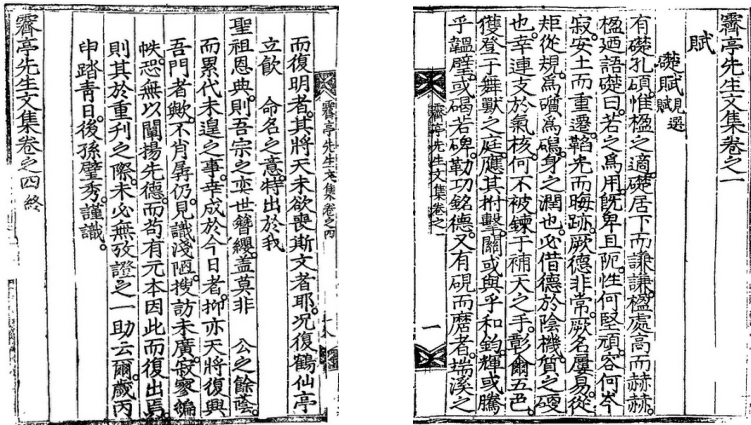 霽亭先生文集卷之一
賦
礎賦見選賦
有礎孔碩惟楹之適礎居下而謙謙楹處高而赫赫
楹廼語礎曰若之爲用旣卑且阨性何堅頑容何岑
寂安土而重遷韜光而晦跡厥德非常厥名屢易從
矩從規爲礩爲磶身之潤也必借德於陰機質之硬
也幸連支於氣核何不被鍊于補天之手彰爾五色
獲登于舞獸之庭應其拊擊關或與乎和鈞輝或騰
乎韞璧或碣若碑勒功銘德又有硯而磨者端溪之
霽亭先生文集卷之一
一
霽亭先生文集卷之四
十八
而復明者其將天未欲喪斯文者耶況復鶴仙亭
立歈 命名之意特出於我
聖祖恩典則吾宗之奕世簪纓盖莫非 公之餘蔭
而累代未遑之事幸成於今日者抑亦天將復興
吾門者歟不肖孱仍見識淺陋搜訪未廣寂寥編
帙恐無以闡揚先德而苟有元本因此而復出焉
則其於重刊之際未必無攷證之一助云爾歲丙
申踏靑日後孫璧秀謹識
霽亭先生文集卷之四終